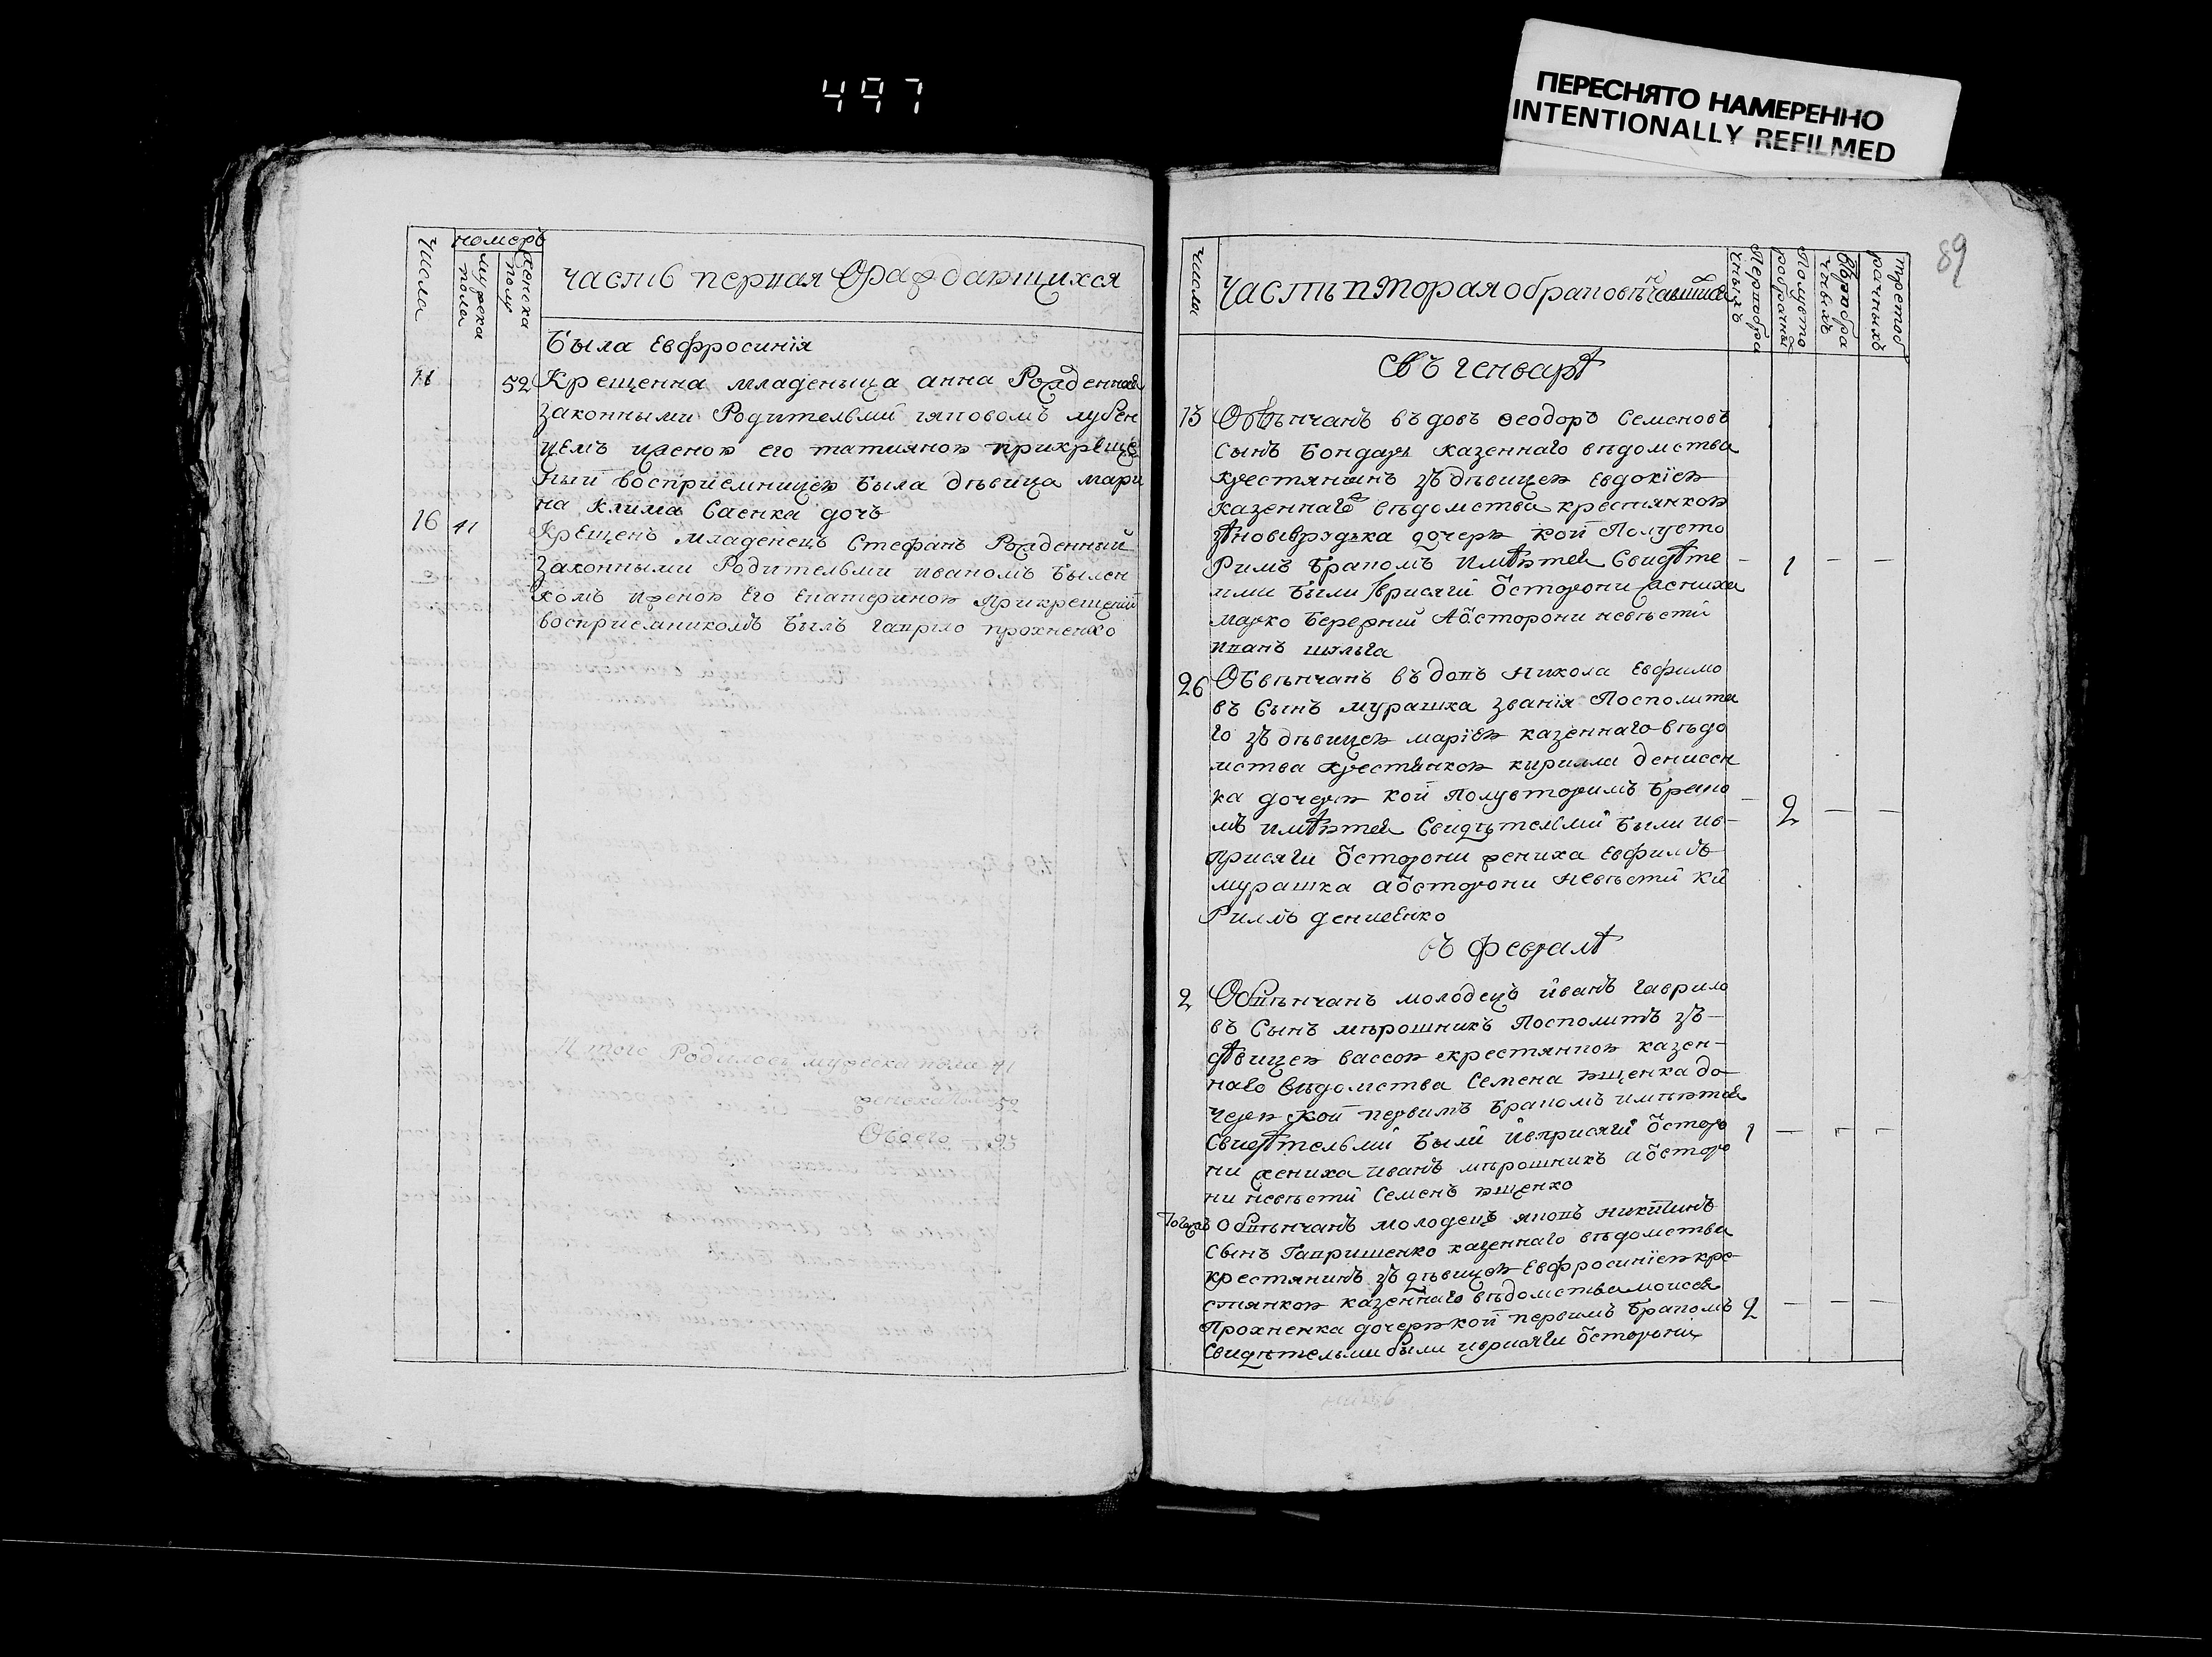 497
ПЕРЕСНЯТО НАМЕРЕННО
INTENTIONALLY REFILMED
89
Числа
номеръ
мужеска пола
женска полу
часть первая О раждающихся
Была Евфросинїя
11 52 Крещенна младеница анна Рожденная
законными Родителми яковомъ лубен
цемъ иженою его татияною прикреще
ныи восприемницею Была дѣвица мари
на клима Саенка дочъ
16 41 Крещенъ младенецъ Стефанъ Рожденный
Законными Родителми иваномъ Былен
комъ иженою Его Екатериною Прикрещенїи
восприемникомъ Былъ гаврило прохненко
Итого Родилось мужеска пола 41
женска пола 52
Обоего 93
числа
Часть вторая о браковѣнчавшихся
Первобра чныхъ
Полувто робрачны
Второбра чныхъ
третоб рачныхъ
Въ генварѣ
13 Обвѣнчанъ въдовъ Ѳеодоръ Семеновъ
Сынъ Бондарь казеннаго вѣдомства
крестянинъ зъ дѣвицею Евдокїею
казеннаго вѣдомства крестянкою
дочерю кои Полувто
Римъ Бракомъ имѣютса Свидѣте – 1 – –
лми Были Іврисяги ѿсторони жениха
марко Бережнии Аѿсторони невѣсти
иванъ шульга
26 Обвѣнчанъ въдовъ никола Евфимо
въ Сынъ мурашка званїя Посполита
го зъ дѣвицею марїею казеннаго вѣдо
мства крестянкою кирилла денисен
ка дочерю кои Полувторимъ Брако
мъ имѣютса Свидѣтелми Были ив– – 2 – –
присяги ѿсторони жениха Евфимъ
мурашка аѿсторони невѣсти ки
Риллъ денисенко
въ февралѣ
2 Обвѣнчанъ молодецъ иванъ гаврило
въ Сынъ мѣрошникъ Посполитъ зъ–
дѣвицею вассою крестянкою казен–
наго вѣдомства Семена ющенка до
черю кои первимъ Бракомъ имѣютса
Свидѣтелми Были ивприсяги ѿсторо 1 – – –
ни жениха иванъ мѣрошникъ аѿсторо
ни невѣсти Семенъ ющенко
Тогожъ Обвѣнчанъ молодецъ яковъ никитинъ
Сынъ Гавришенко казеннаго вѣдомства
крестянинъ зъ дѣвицею Евфросинїею кре
стянкою казеннаго вѣдомства моисея
Прохненка дочерю кои первимъ Бракомъ 2 – – –
Свидѣтелми были иврисяги ѿсторони